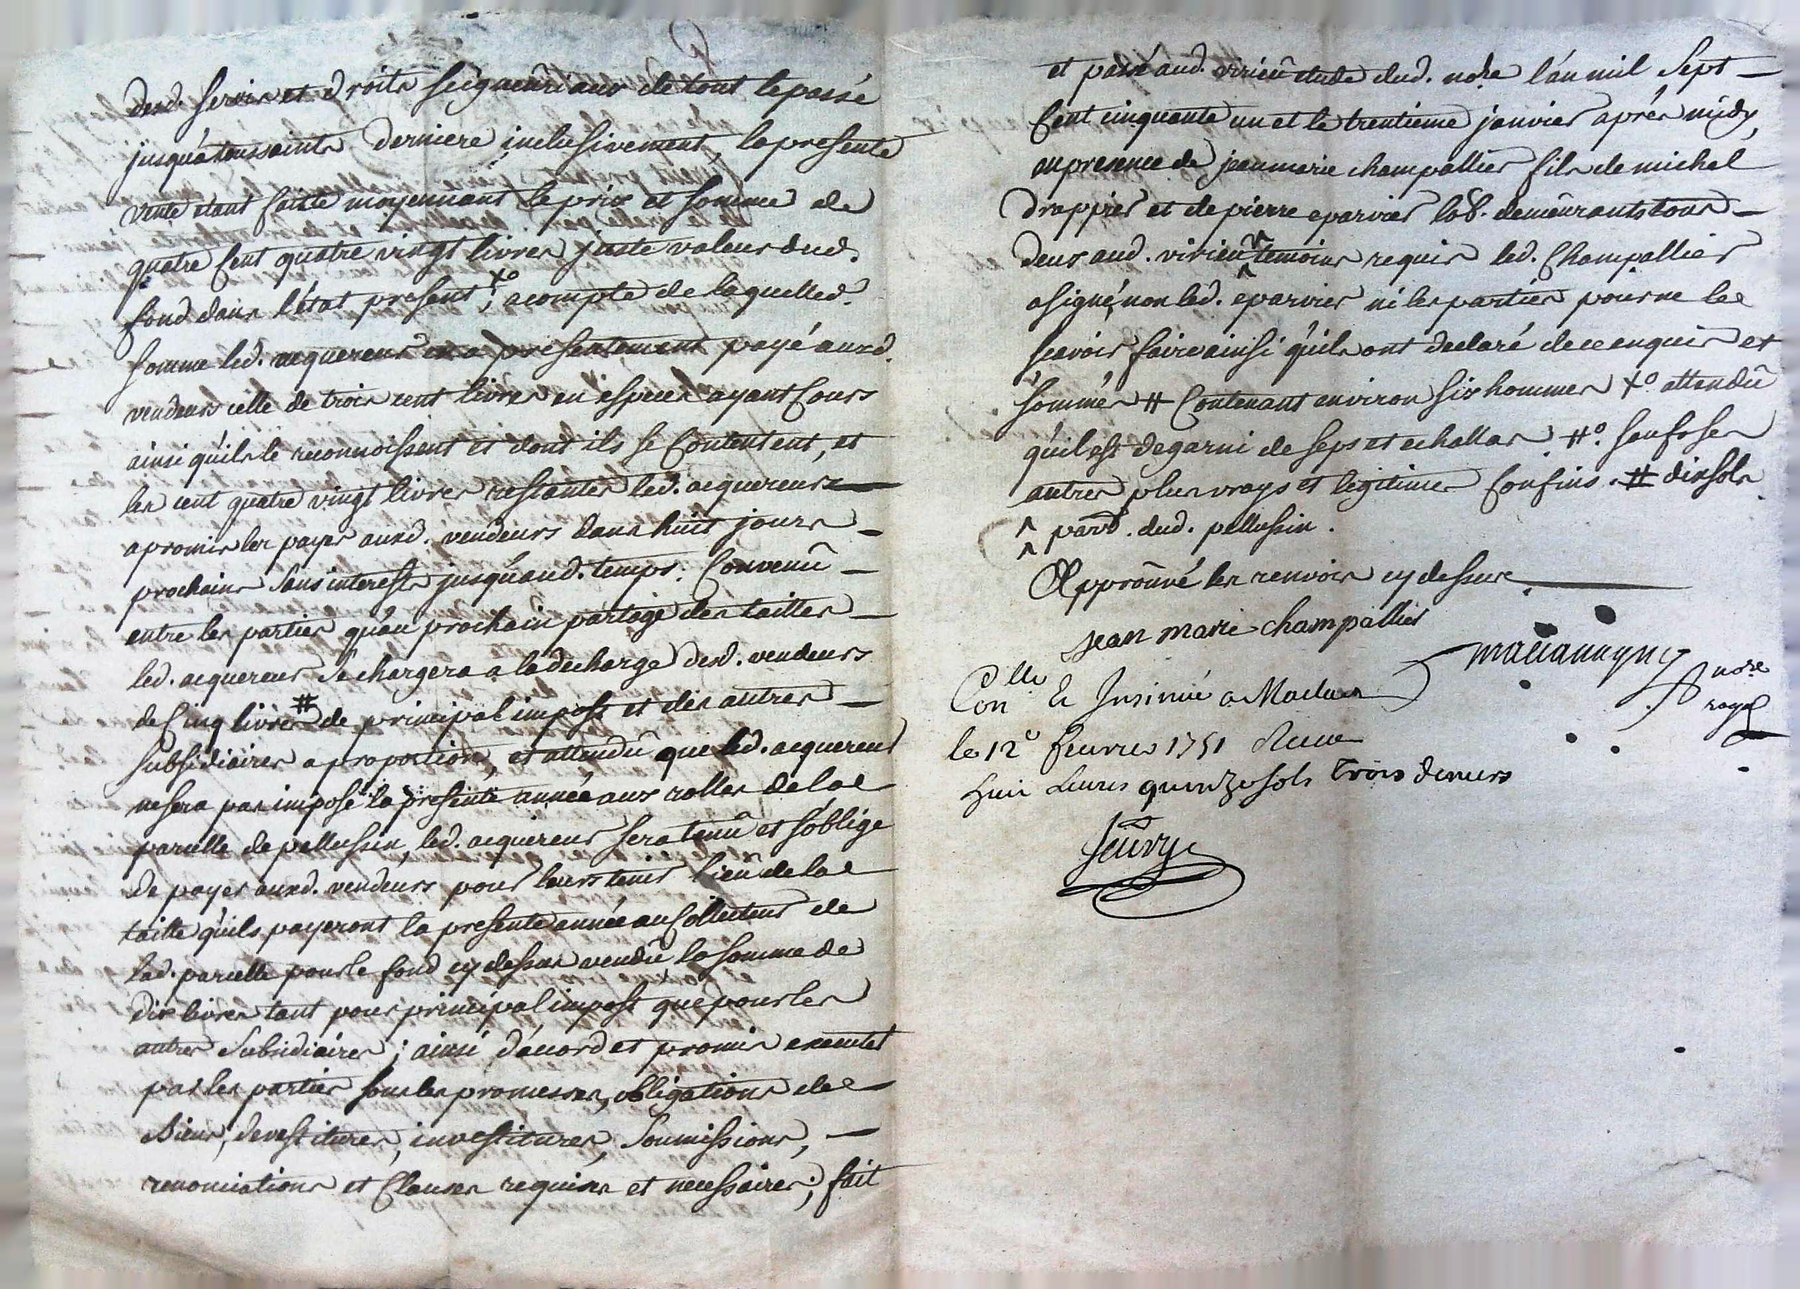 desd. servis et droits seigneuriaux de tout le passé
jusqu'a toussaints derniere inclusivement, la presente
vente etant faitte moyennant le prix et somme de
quatre cent quatre vingt livres juste valeur dud.
fond dans l'état present X°, acompte de laquelle d.
somme led. acquereur en a presentement payé auxd.
vendeurs celle de trois cent livres en especes ayant Cours
ainsi qu'ils le reconnoissent et dont ils se Contentent, et
les cent quatre vingt livres restantes led. acquereur
a promis les payer auxd. vendeurs dans huit jours
prochains sans interests jusqu'aud. temps. Convenû
entre les parties qu'au prochain partage des tailles
led. acquereur se chargera a la decharge desd. vendeurs
de Cinq livres # de principal impost et des autres
subsidiaires a proportion, et attendû que led. acquereur
ne sera pas imposé la presente année aux rolles de la
parcelle de pellussin, led. acquereur sera tenû et s'oblige
de payer auxd. vendeurs pour leurs tenir lieu de la
taille qu'ils payeront la presente année au Collecteur de
lad. parcelle pour le fond cy dessus vendû la somme de
dix livres tant pour principal impost que pour les
autres subsidiaires; ainsi d'acord et promis executer
par les parties sous les promesses, obligations de
Biens, devestitures, investitures, soumissions,
renonciations et Clauses requises et necessaires; fait
et passé aud. virieu etude dud. nore l'an mil sept
Cent cinquante un et le trentieme janvier aprés midy,
en presence de jean marie champallier fils de michel
drappier et de pierre eparvier lab. demeurants tous
deux aud. virieu temoins requis led. Champallier
a signé, non led. eparvier ni les parties pour ne le
sçavoir faire ainsi qu'ils ont declaré de ce enquis et
sommés # Contenant environ six hommes X° attendû
qu'il est degarni de seps et echallas #°. sauf ses
autres plus vrays et legitimes Confins. # dix sols
pard. dud. pellussin.
Approuvé les renvois cy dessus
jean marie champallier
nore
royal
Conlle & Insinué a Maclas
le 12e feuvrier 1751 Recu
huit Livres quinze sols trois deniers